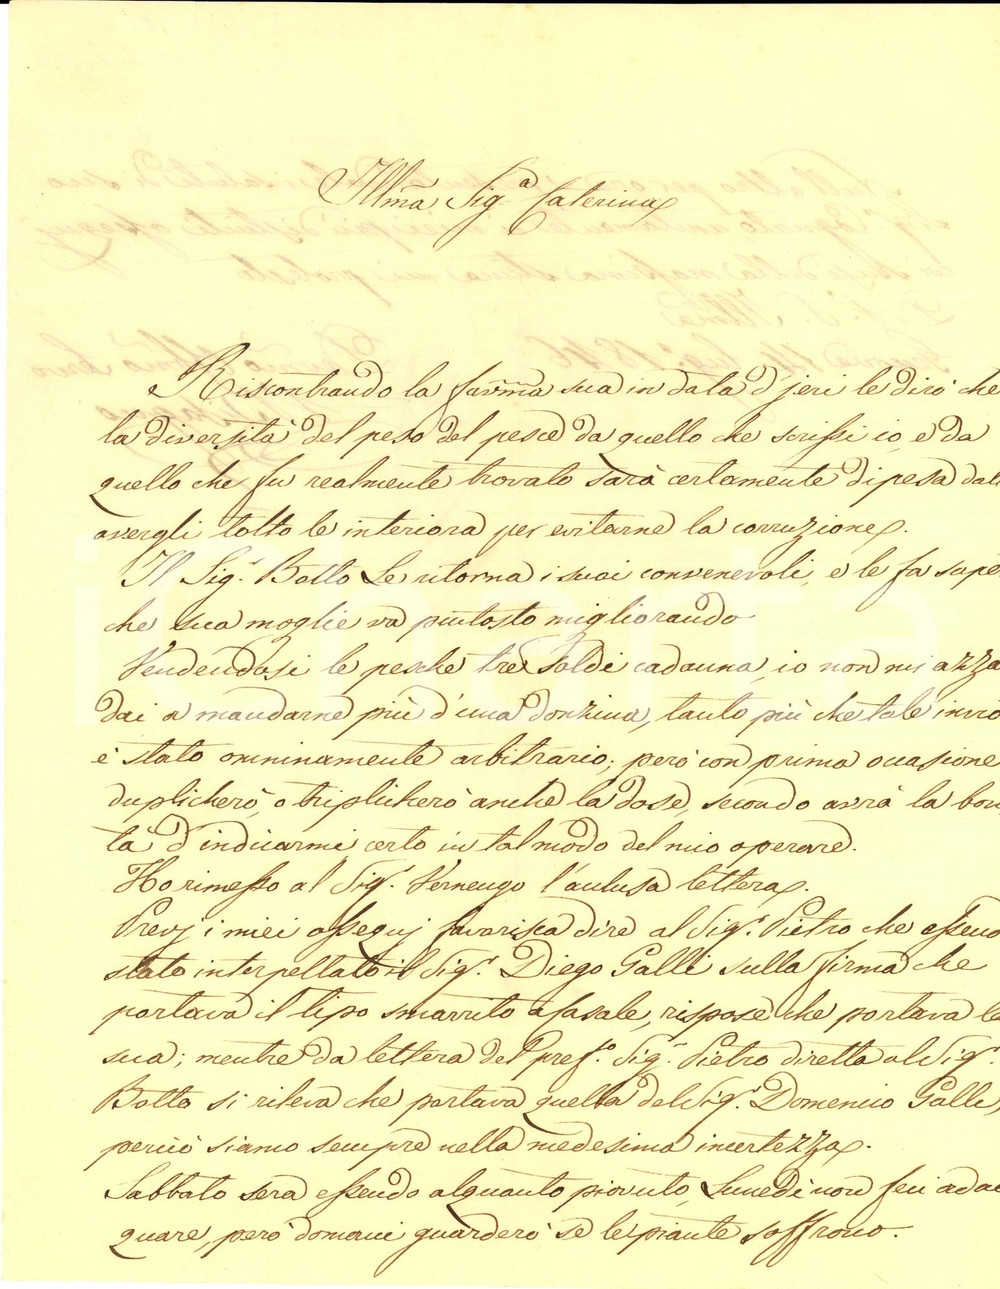 Illm̃a Sig.ª Caterina
Riscontrando la favm̃a sua in data d'jeri le dirò che
la diversità del peso del pesce da quello che scrissi io, e da
quello che fu realmente trovato sarà certamente dipesa dall
avergli tolto le interiora per evitarne la corruzione.
Il Sig.r Botto Le ritorna i suoi convenevoli, e le fa sape
che sua moglie va piuttosto migliorando
Vendendosi le pesche tre Soldi cadauna, io non mi azzar
dai a mandarne più d'una donzina, tanto più che tale invio
è stato onninamente arbitrario; però con prima occasione
duplicherò, o triplicherò anche la dose, secondo avrà la bon
tà d'indicarmi certo in tal modo del mio operare.
Ho rimesso al Sig.r Vernengo l'aclusa lettera.
Previ i miei ossequj favorisca dire al Sig.r Pietro che essendo
stato interpellato il Sig.r Diego Galli sulla firma che
portava il tipo smarrito a Casale, rispose che portava la
sua; mentre da lettera del Pref.o Sig.r Pietro diretta al Sig.r
Botto si rileva che portava quella del Sig.r Domenico Galli,
perciò siamo sempre nella medesima incertezza.
Sabbato sera essendo alquanto piovuto, Lunedì non feci adac
quare, però domani guarderò se le piante soffrono.